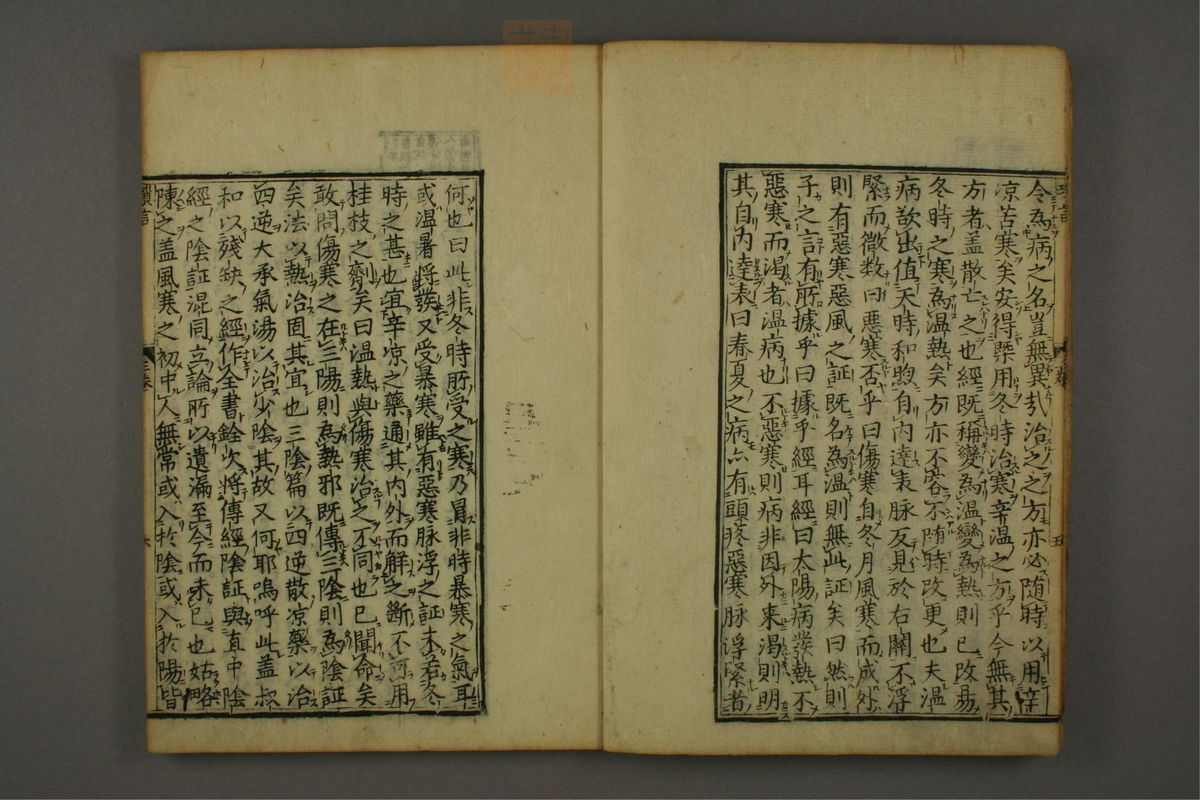 令為病之名豈無異㢤治之之方亦必随時以用辛
凉苦寒矣安得槩用冬時治寒辛温之方乎今無其
方者盖散亡之也經既稱變為温變為熱則已改易
冬時之寒為温熱矣方亦不容不随時改更也夫温
病欲出值天時和煦自内達表脉反見於右關不浮
緊而微数曰惡寒否乎曰傷寒自冬月風寒而成外
則有惡寒惡風之証既名為温則無此証矣曰然則
子之言有所據乎曰據乎經耳經曰太陽病發熱不
惡寒而渴者温病也不惡寒則病非因外来渴則明
其自内達表曰春夏之病亦有頭疼惡寒脉浮緊者
何也曰此非冬時所受之寒乃冐非時暴寒之氣耳
或温暑将發又受暴寒雖有惡寒脉浮之証未若冬
時之甚也宜辛凉之藥通其内外而解之斷不可用
桂枝之劑矣曰温熱與傷寒治之不同也已聞命矣
敢問傷寒之在三陽則為熱邪既傳三陰則為陰証
矣法以熱治固其宜也三陰篇以四逆散凉藥以治
四逆大承氣湯以治少陰其故又何耶嗚呼此盖叔
和以殘缺之經作全書銓次将傳經陰証與直中陰
經之陰証混同立論所以遺漏至今而未已也姑略
陳之盖風寒之初中人無常或入於陰或入於陽皆